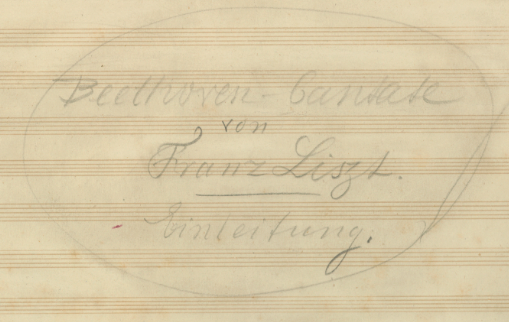 Beethoven-Cantate
von
Franz Liszt.
Einleitung.